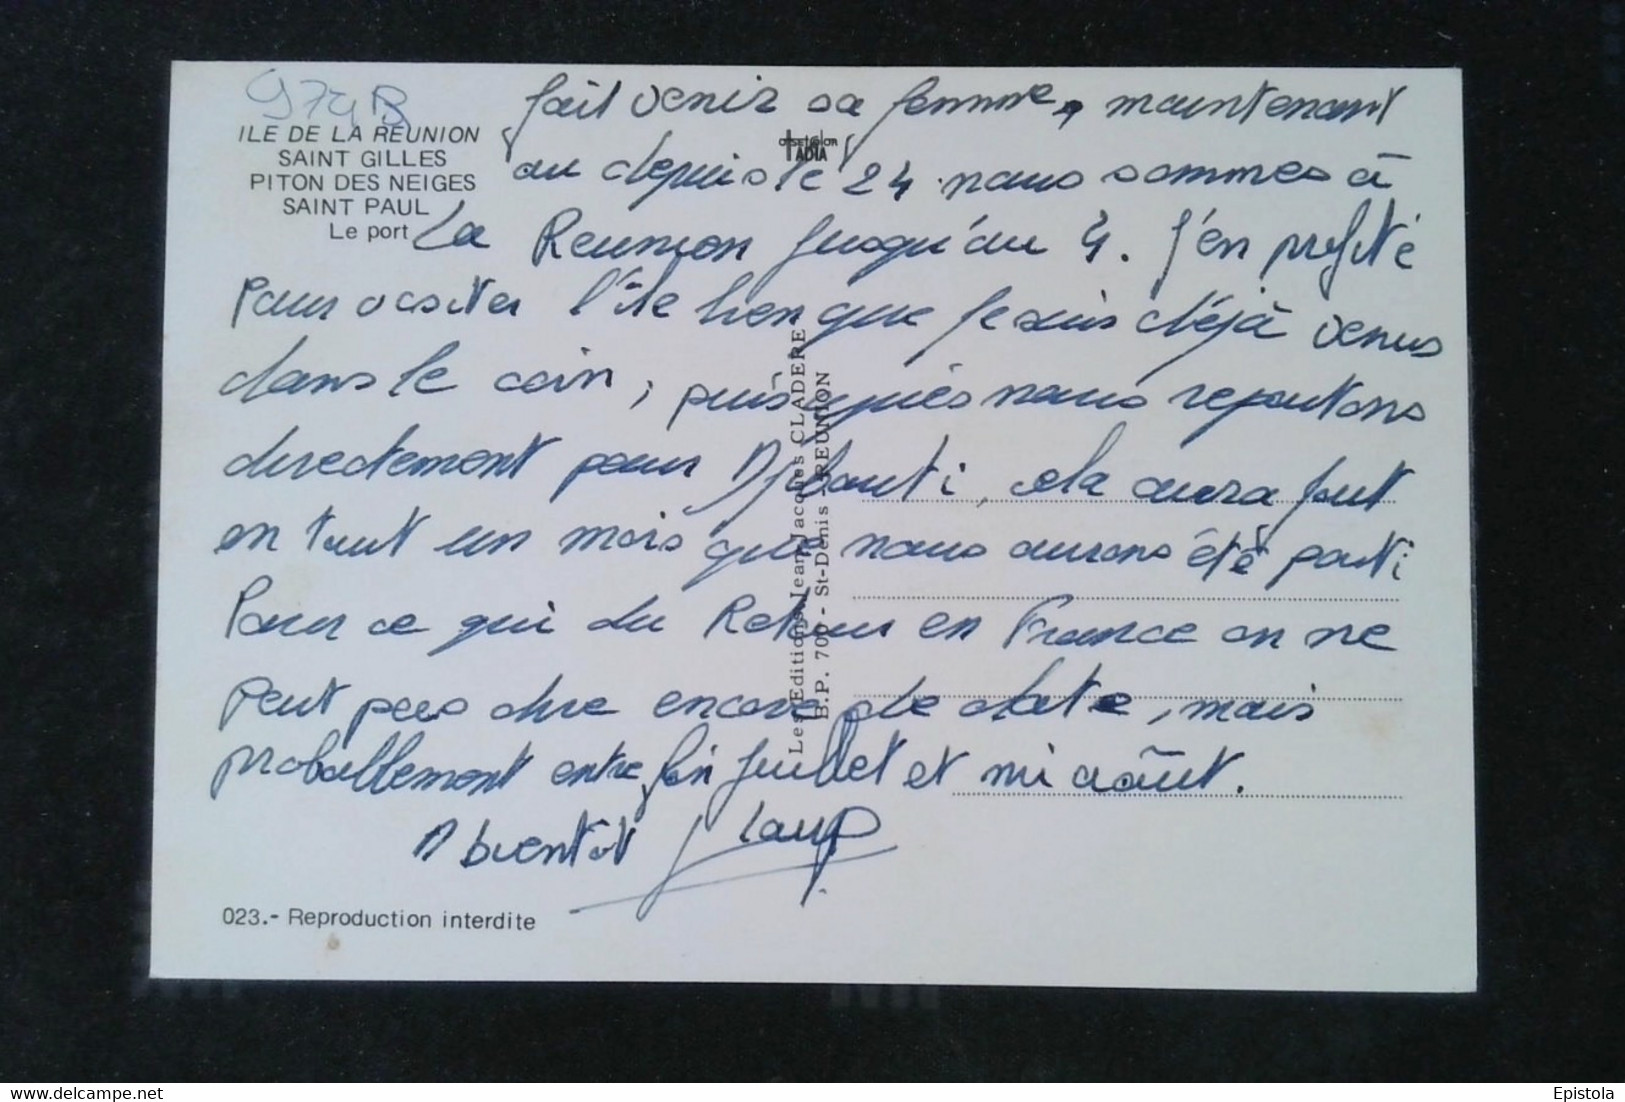 974B
ILE DE LA REUNION
SAINT GILLES
PITON DES NEIGES
SAINT PAUL
Le port
offset color
IADIA
fait venir sa femme, maintenant
ou depuis le 24 nous sommes à
La Reunion jusqu'au 4. J'en profite
pour visiter l'île bien que je suis déjà venus
dans le coin, puis après nous repartons
directement pour Djibouti, cela aura fait
en tout un mois que nous aurons été parti
Pour ce qui du Retour en France on ne
peut pas dire encore de date, mais
probablement entre fin juillet et mi août.
A bientôt
Les Editions Jean-Jacques CLADERE
B.P. 700 - St-Denis - REUNION
023.- Reproduction interdite
delcampe.net
Epistola